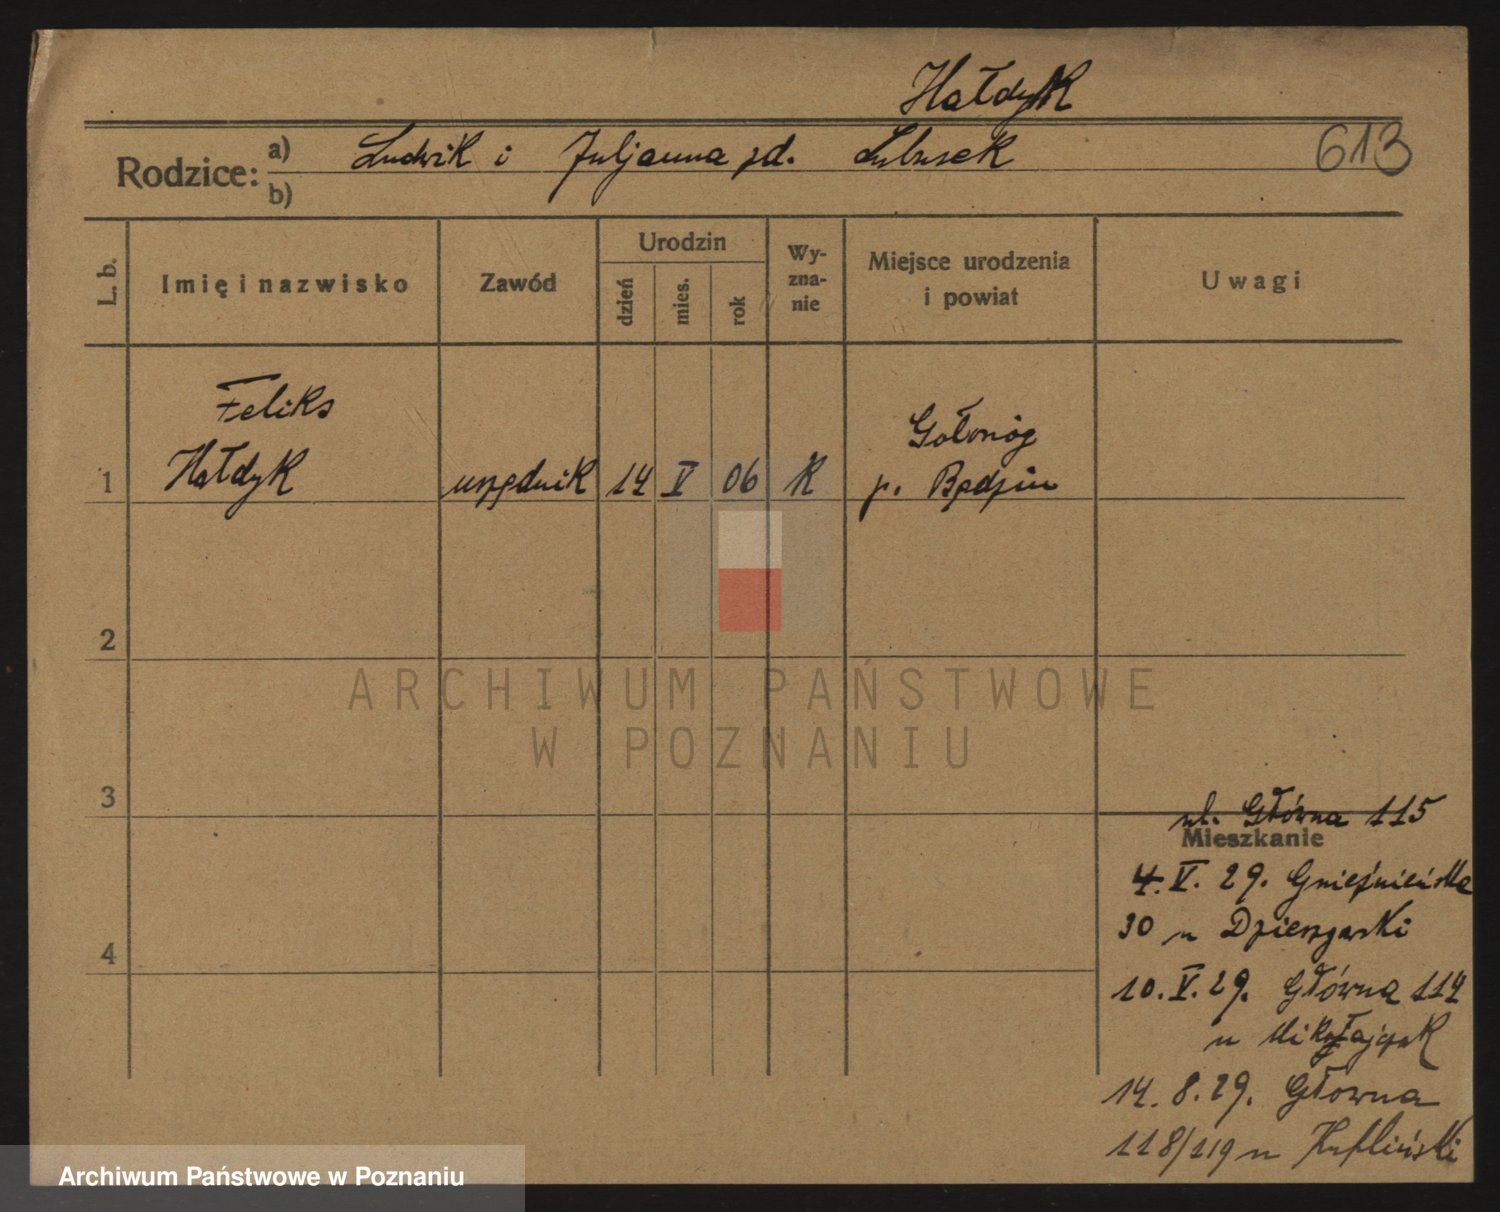 Hałdyk
Rodzice: a) Ludwik i Juljanna zd. Lubusek
613
b)
L. b.
Imię i nazwisko
Zawód
Urodzin
dzień
mies.
rok
Wy-
zna-
nie
Miejsce urodzenia
i powiat
Uwagi
Feliks
Gołonóg
1 Hałdyk urzędnik 14 V 06 K p. Będzin
2
ARCHIWUM PAŃSTWOWE
W POZNANIU
3
ul. Główna 115
Mieszkanie
4. V. 29. Gnieźnieńska
30 u Dzieszgarski
4
10. V. 29. Główna 114
u Mikołajczak
14. 8. 29. Główna
118/119 u
Archiwum Państwowe w Poznaniu